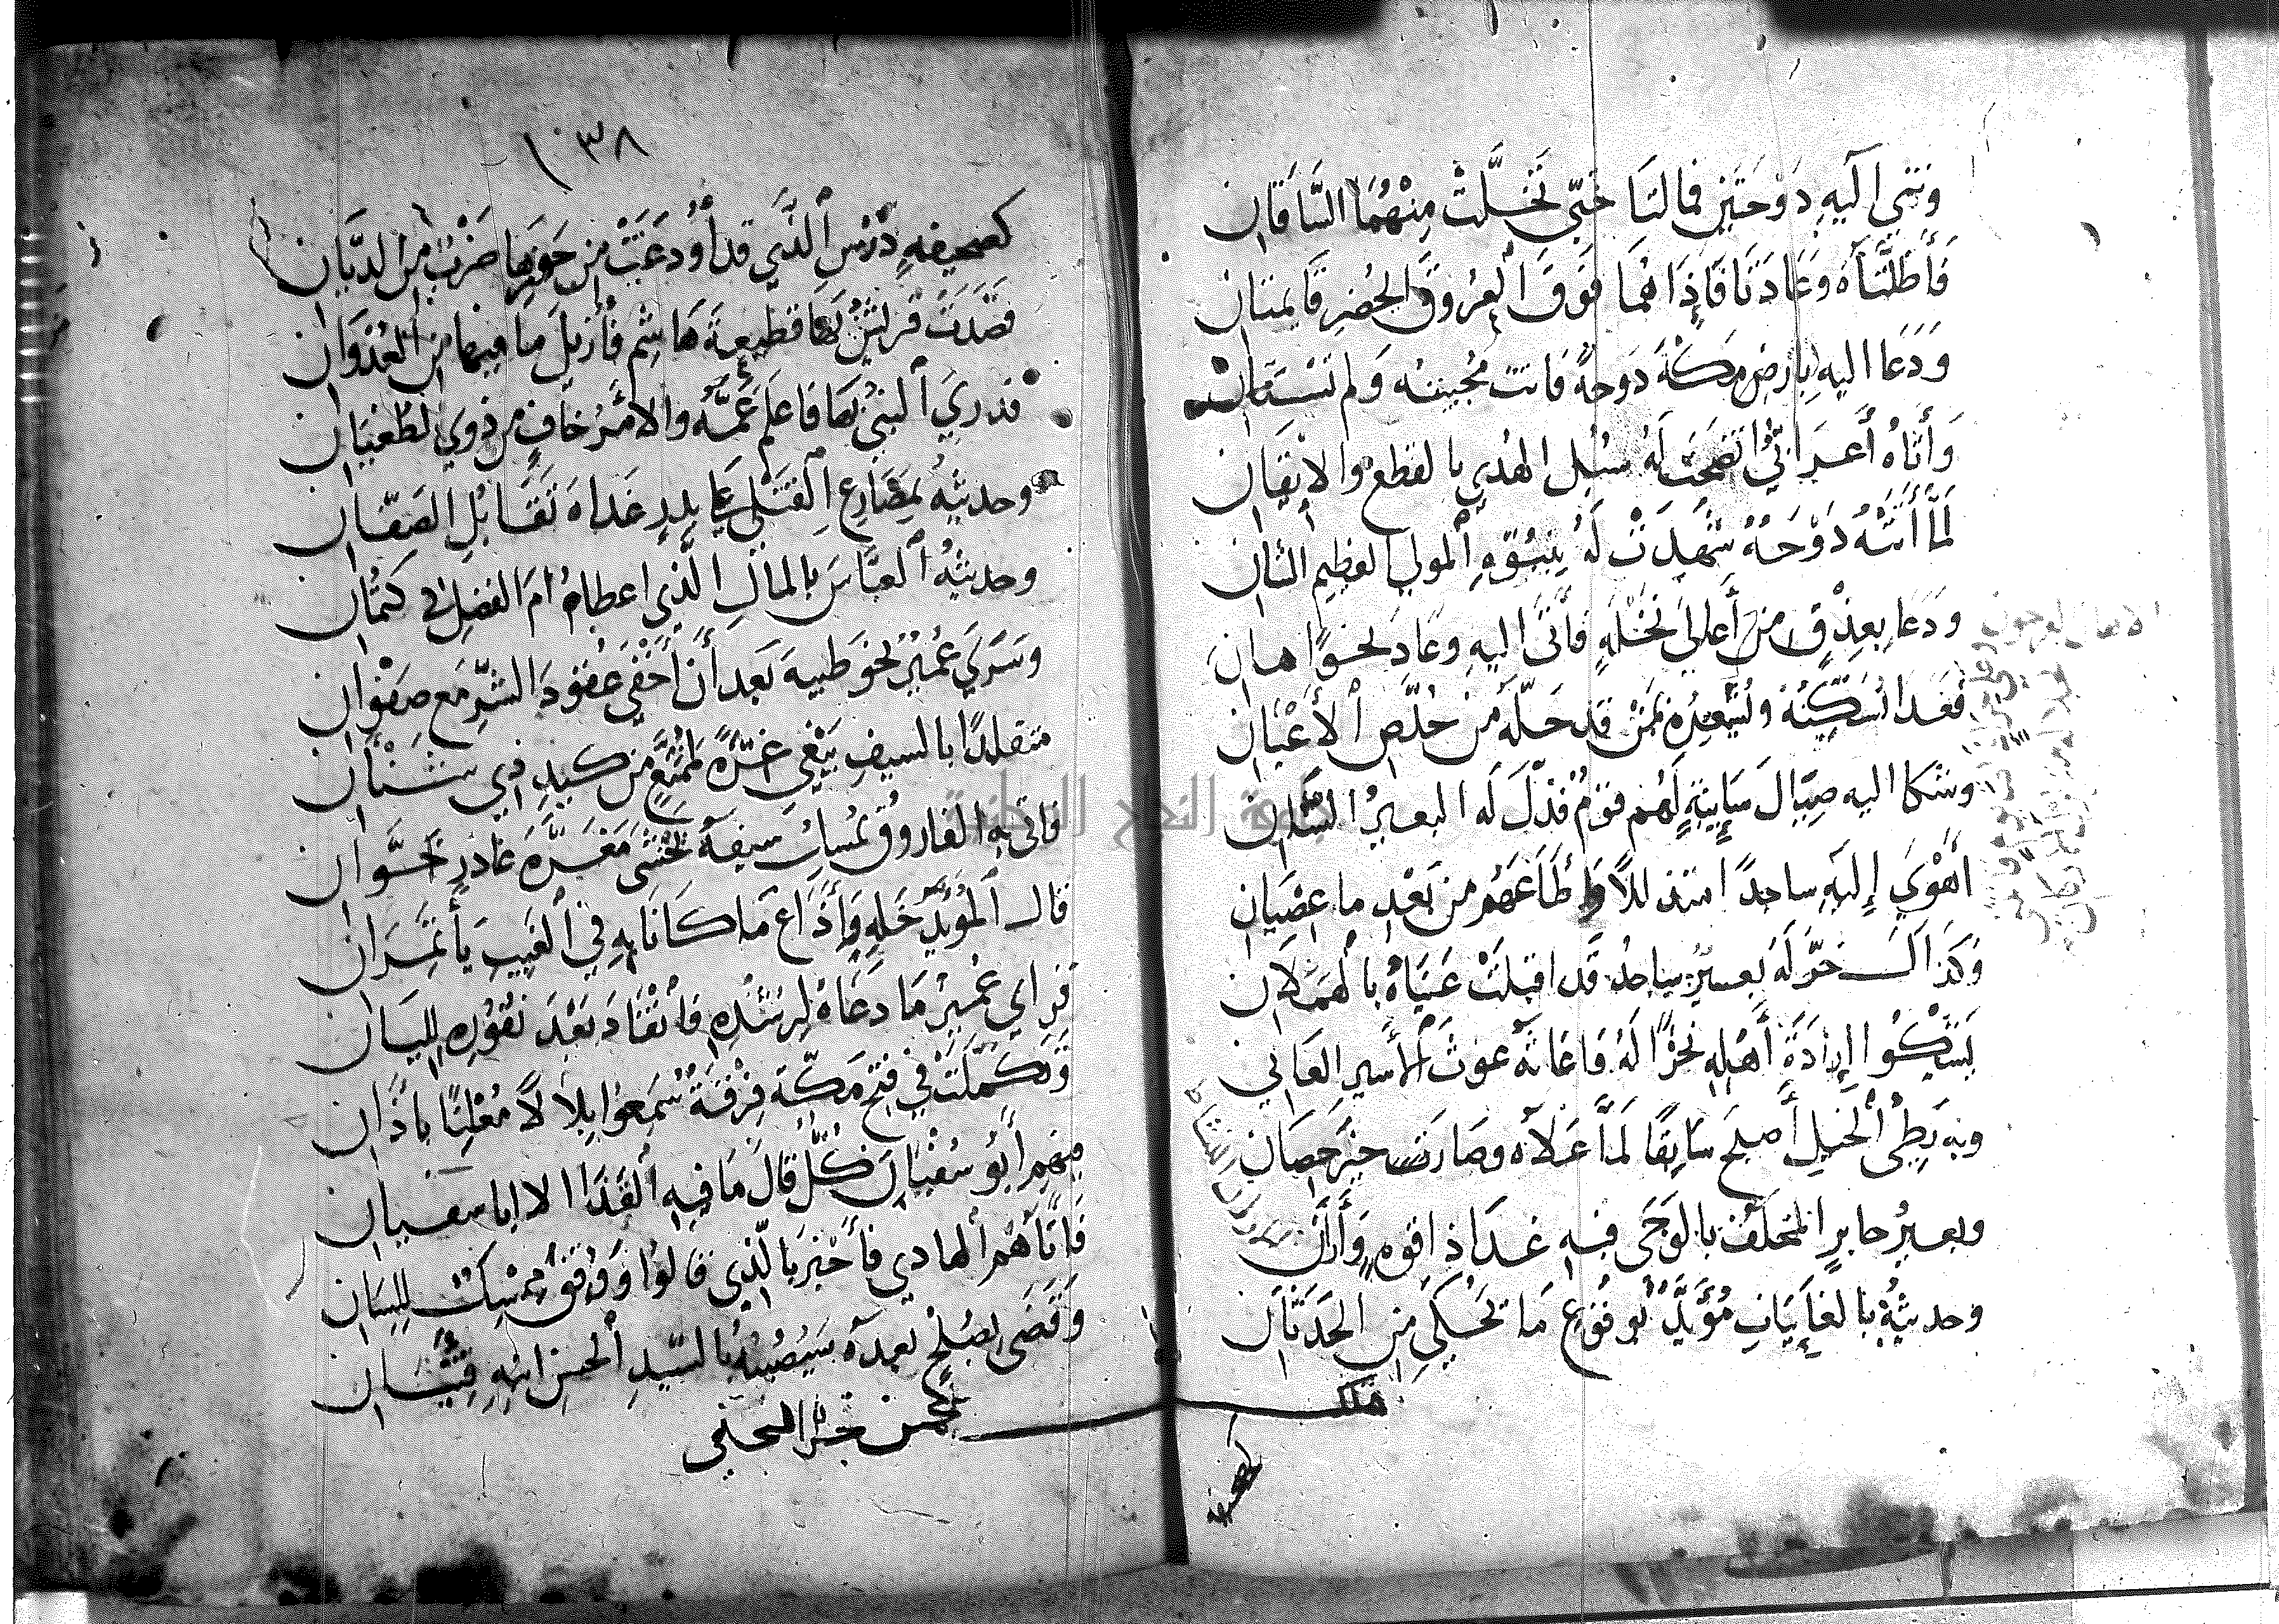 وثنى اليه دوحتين فمالتا حتى تخللت منهما الساقان
فأظلتاه وعادتا فإذا هما فوق العروق الخضر قايمتان
ودعا اليه بارض مكة دوحة فاتت مجيبته ولم تستان
وأتاه أعرابي اتضحت له سبل الهدي بالقطع والايقان
لما أتته دوحة شهدت له بنبوة المولي العظيم الشان
ودعا بعذق من أعالي نخله فأتى اليه وعاد نحو اهان
فغدا تسكنه وتسعده بمن قد حله من خلص الأعيان
وشكا اليه صيال سانية لهم قوم فذل له البعير
أهوي إليه ساجدا متذللا وأطاعهم من بعد ما عصيان
وكذاك خر له بعير ساجد قد اقبلت عيناه بالهملان
يشكوا إرادة أهله نحرا له فاغاثه غوث الأسير العاني
وبه بطئ الخيل أصبح سابقا لما علاه وصار خير حصان
وبعير جابر المخلف بالوجى فيه غدا ذا قوة وأرن
وحديثه بالغايبات مؤيد بوقوع ما تحكي من الحدثان
ملك
١٣٨
كصحيفة درس الذي قد أودعت من جورها ضرب من الديان
قصدت قريش بها قطيعة هاشم فأزيل ما فيها من العدوان
فدري النبي بها فاعلم عمه والامر خاف من ذوي الطغيان
وحديثه بمصارع القتلى على بدر غداة تقابل الصفان
وحديثه العباس بالمال الذي اعطاه ام الفضل في كتمان
وسري عمير نحو طيبة بعد أن أخفى عقود الشر مع صفوان
متقلدا بالسيف يبغي غرة لممنع من كيد ذي شنآن
فاتى به الفاروق يمسك سيفه يخشى معرة غادر خوان
قال المؤيد خله وأذاع ما كانا به في الغيب يأتمران
فراي عمير ما دعاه لرشده فانقاد بعد نفوره لليان
وتكملت في فتح مكة فرقة سمعوا بلالا معلنا باذان
منهم أبو سفيان كل قال ما فيه القذا الا ابا سفيان
فأتاهم الهادي فأخبر بالذي قالوا ووفق ممسك للسان
وقضى بصلح بعده سيصيبه بالسيد الحسن ابنه فتيان